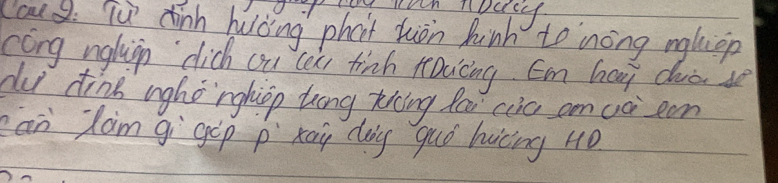 Câu 9: Từ định hướng phát triển kinh tế nông nghiệp
công nghiệp dịch vụ của tỉnh HDương. Em hãy chia sẻ
dự định nghề nghiệp trong tương lai của em và em
cần làm gì góp p xây dựng quê hương HD